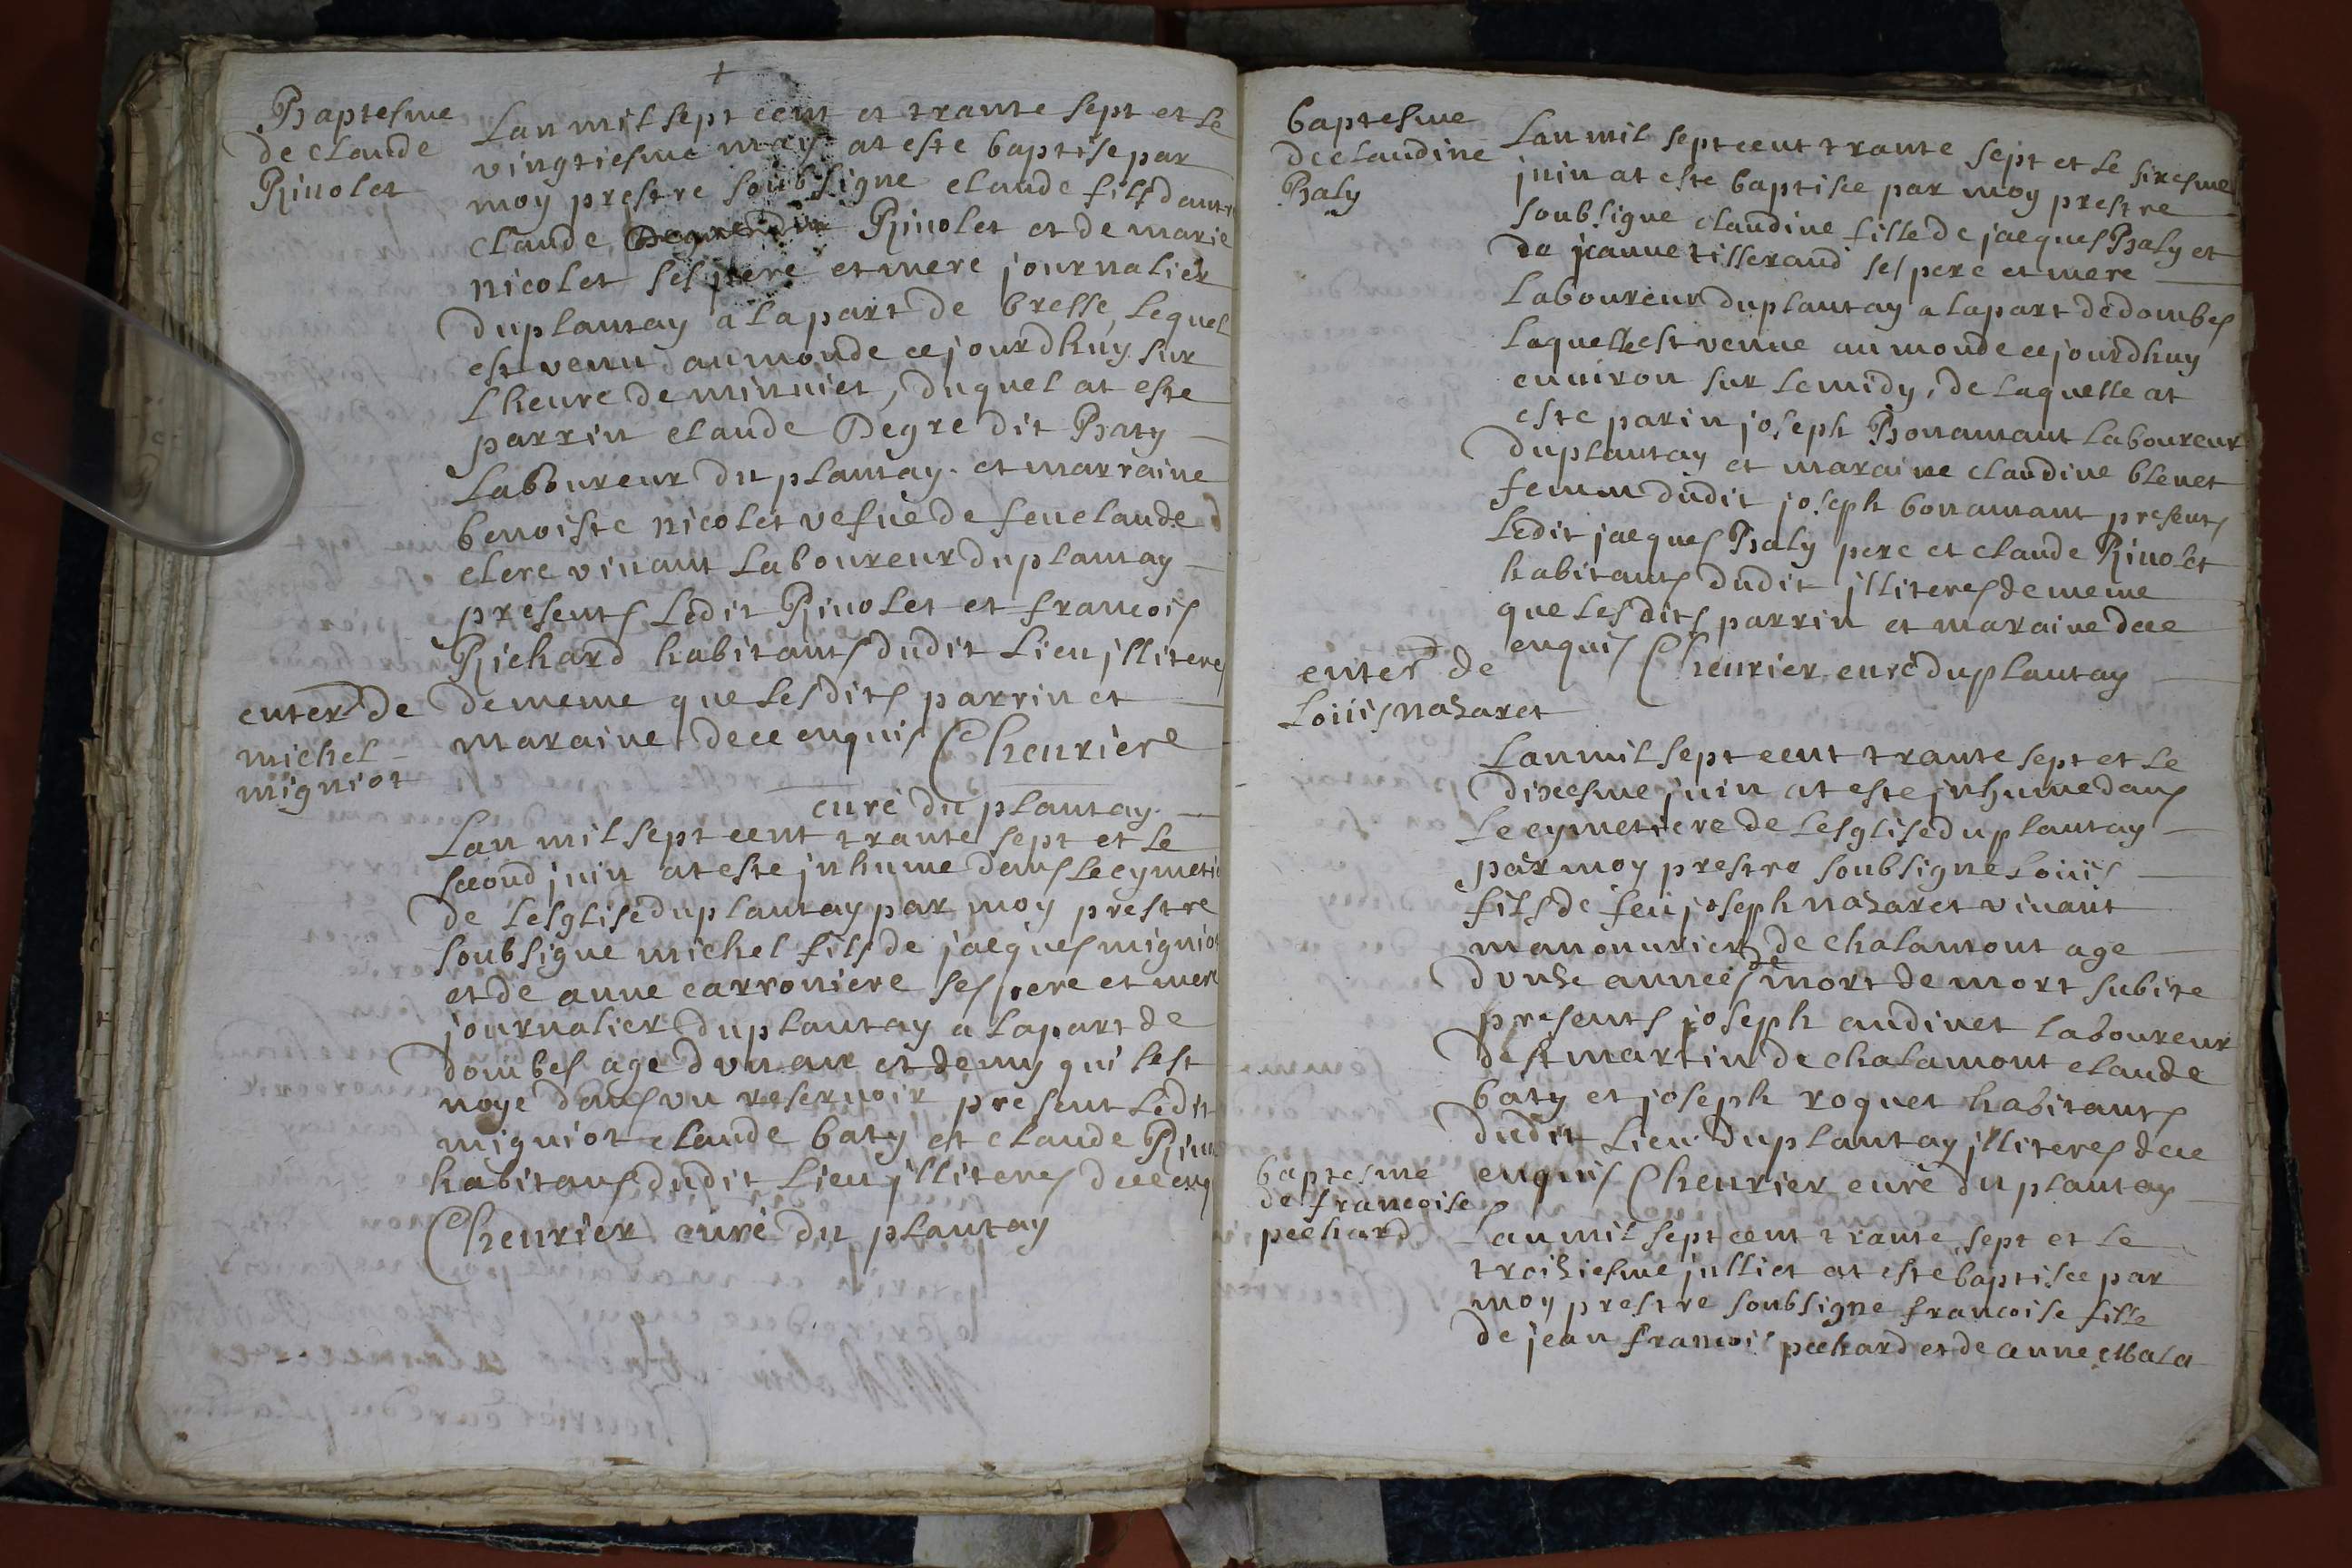 Baptesme
de claude
Riuolet
Lan mil sept cent et trante sept et le
vingtiesme may at este baptise par
moy prestre soubsigne claude fils dautre
claude Riuolet et de marie
nicolet ses pere et mere journalier
du plantay a la part de bresse, lequel
est venu au monde ce jourdhuy sur
lheure de minuict, duquel at este
parrin claude Degre dit Baty
laboureur du plantay. et marraine
benoiste nicolet vefue de feu claude
clere viuant laboureur du plantay
presents ledit Riuolet et francois
Richard habitants dudit lieu jlliteres
de meme que lesdits parrin et
maraine de ce enquis Cheurier
curé du plantay.
enterr de
michel
migniot
Lan mil sept cent trante sept et le
second juin at este jnhume dans le cymeti
de lesglise du plantay par moy prestre
soubsigne michel fils de jacques migniot
et de anne carroniere ses pere et mere
journalier du plantay a la part de
dombes age dvn an et demy qui sest
noye dans vn reseruoir present ledit
migniot claude baty et claude Riuo
habitans dudit lieu jlliteres de ce enq
Cheurier curé du plantay
baptesme
de claudine
Baly
Lan mil sept cent trante sept et le sixesme
juin at este baptisee par moy prestre
soubsigne claudine fille de jacques Baly et
de jeanne tisserand ses pere et mere
laboureur du plantay a la part de dombes
laquelle est venue au monde ce jourdhuy
enuiron sur le midy, de laquelle at
este parin joseph Bonamant laboureur
du plantay et maraine claudine bleuet
femm dudit joseph bonamant presents
ledit jacques Baly pere et claude Riuolet
habitants dudit jlliteres de meme
que lesdits parrin et maraine de ce
enquis Cheurier curé du plantay
enterr de
Loüis nazaret
Lan mil sept cent trante sept et le
dixesme juin at este jnhume dans
le cymetiere de lesglise du plantay
par moy prestre soubsigne Loüis
fils de feu joseph nazaret viuant
manouurier de chalamont age
dvnze années mort de mort subite
presents joseph andiuet laboureur
de st martin de chalamont claude
baty et joseph roquet habitants
dudit lieu du plantay jlliteres de ce
enquis Cheurier curé du plantay
baptesme
de francoise
pechard
Lan mil sept cent trante sept et le
troiziesme julliet at este baptisee par
moy prestre soubsigne francoise fille
de jean francois pechard et de anne Mala